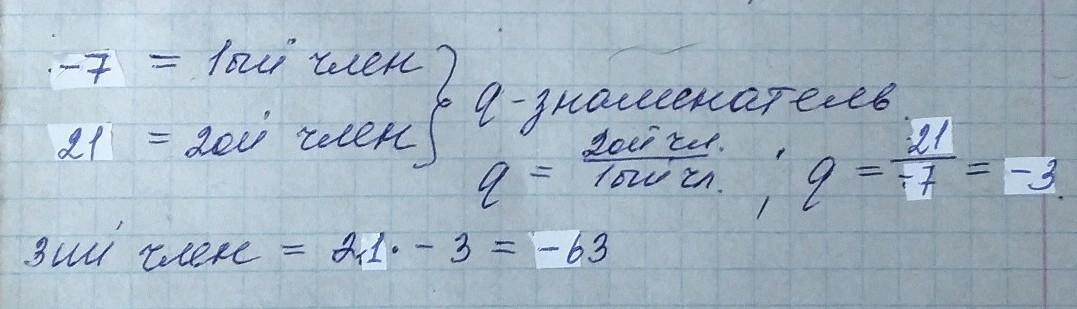 -7 = 1ый член
21 = 2ой член } q - знаменатель.
q = 2ой чл. / 1ый чл. ; q = 21 / -7 = -3
3ий член = 21 · - 3 = -63